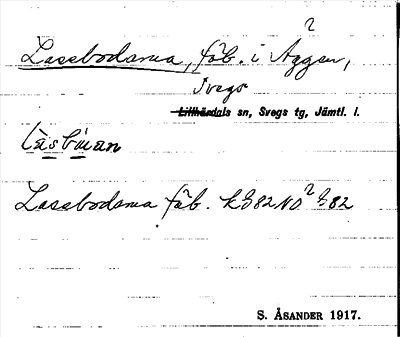 ?
Lassbodarna, fäb. i Äggen,
Svegs
Lillhärdals sn, Svegs tg, Jämtl. l.
làsbúan
Lassbodarna fäb. kg 82 NO ? g 82
S. ÅSANDER 1917.